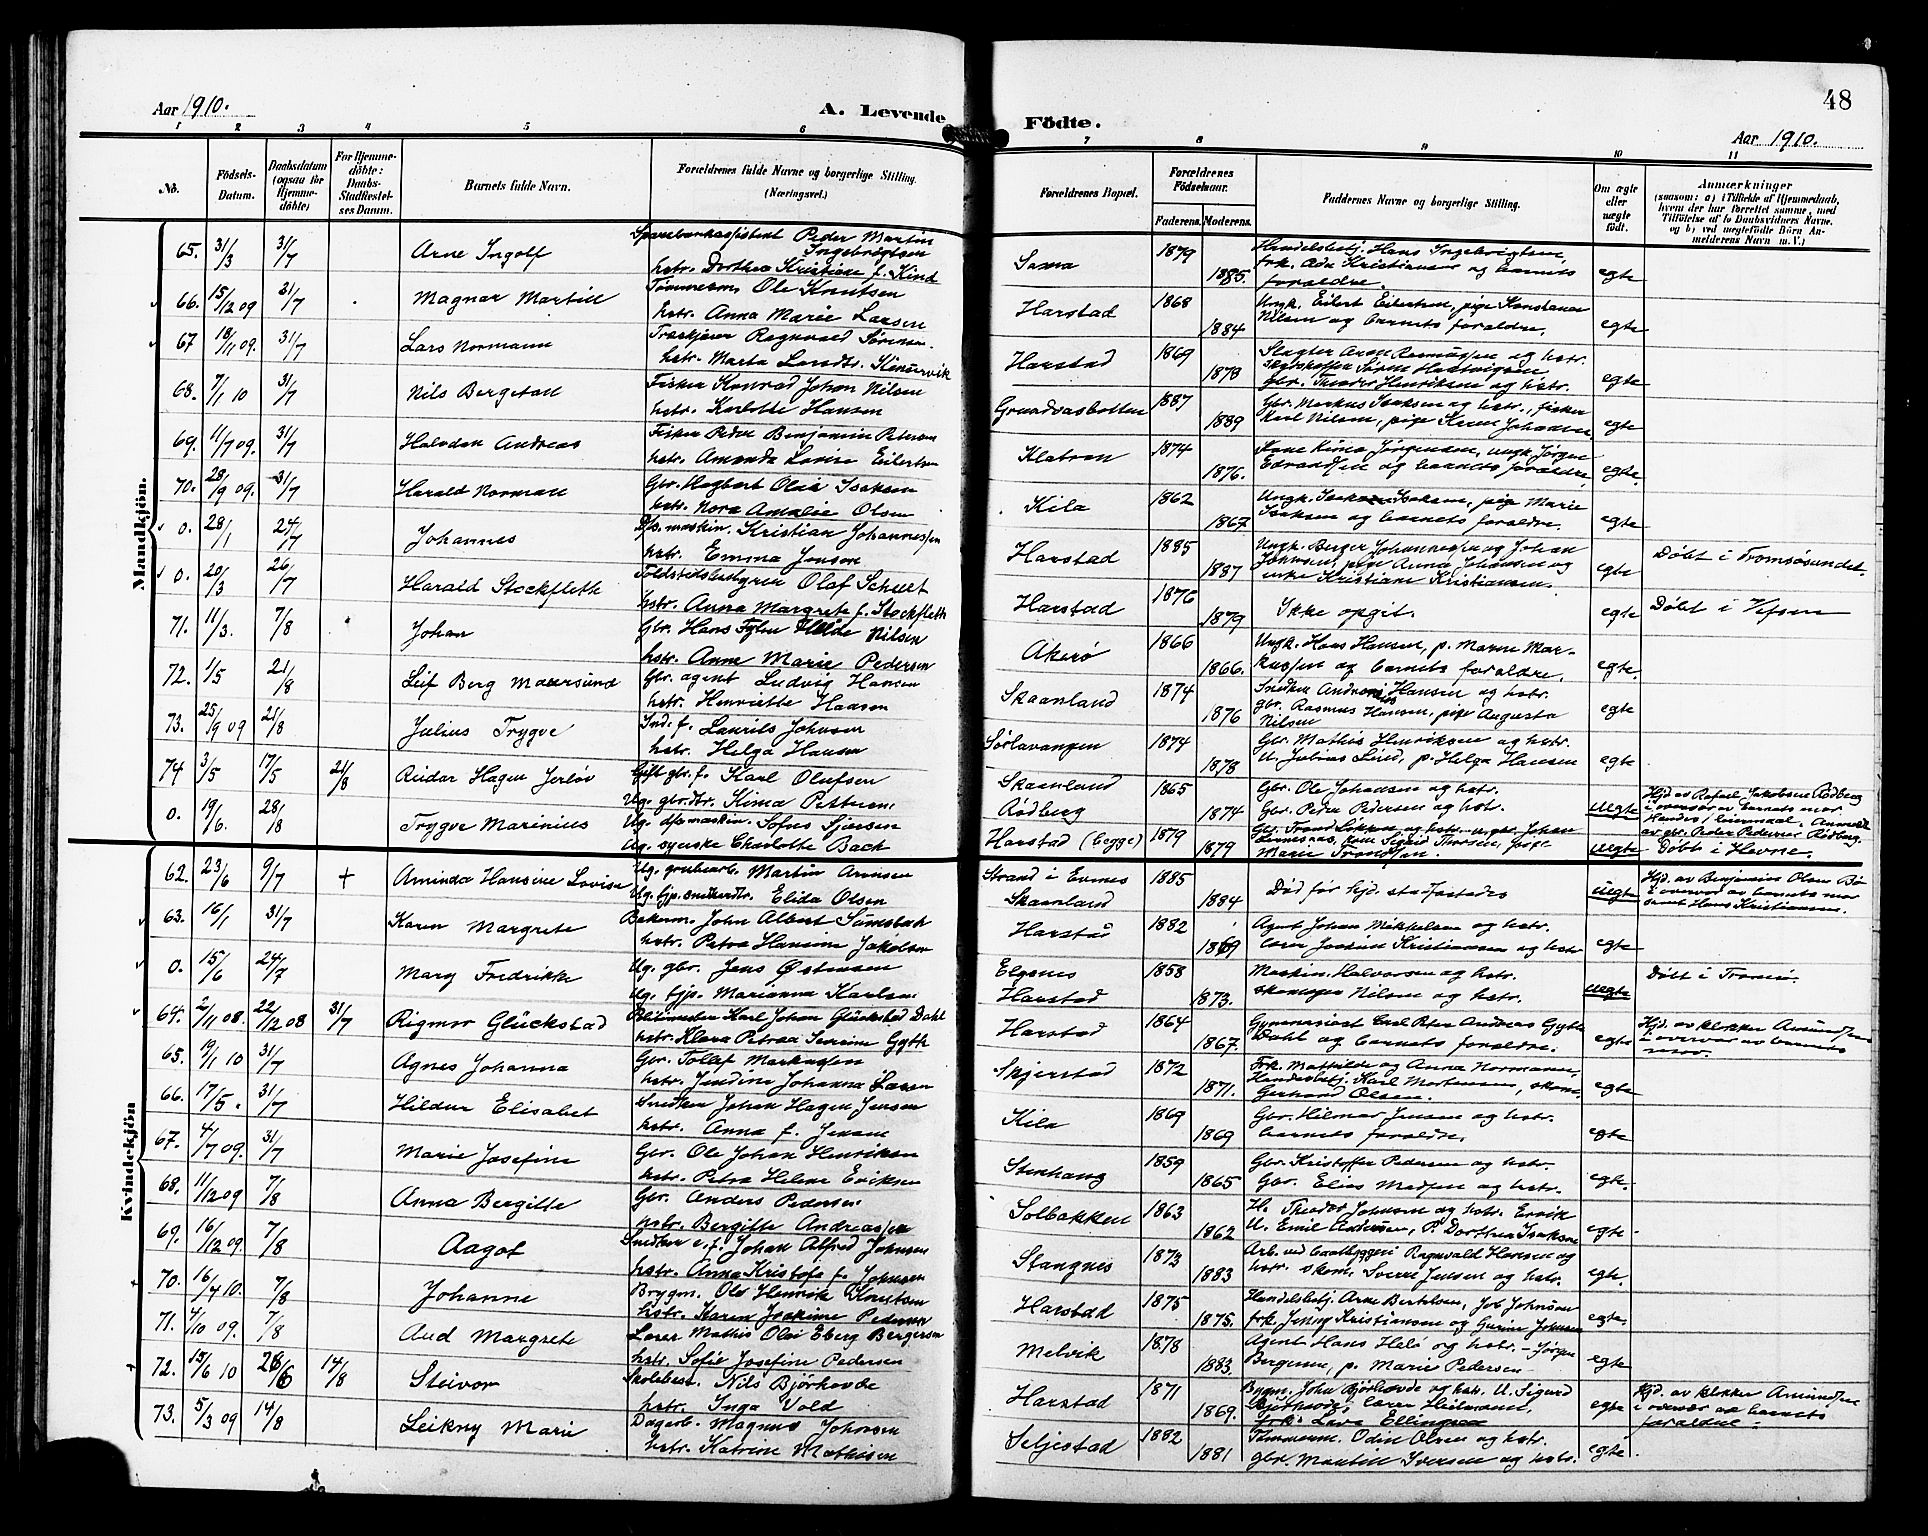 48
Aar 1910.
A. Levende Fødte.
Aar 1910.
1 2 3 4 5 6 7 8 9 10 11
No.
Fødsels-Datum.
Daabsdatum (ogsaa for Hjemme-døbte)
For Hjemme-døbte: Daabs-Stadfæstel-ses Datum.
Barnets fulde Navn.
Forældrenes fulde Navne og borgerlige Stilling. (Næringsvei.)
Forældrenes Bopæl.
Forældrenes Fødselsaar.
Faderens. Moderens.
Faddernes Navne og borgerlige Stilling.
Om ægte eller uægte født.
Anmærkninger (saasom: a) i Tilfælde af Hjemmedaab, hvem der har forrettet samme, med Tilføielse af to Daabsvidners Navne, og b) ved uægtefødte Børn Anmelderens Navn m. V.)
Mandkjøn.
65. 31/3 31/7 Arne Ingolf Sparebankassistent Peder Martin Ingebrigtsen
hstr. Dorthea Kristine f. Kind
Sama 1879 1885. Handelsbetj. Hans Ingebrigtsen,
frk. Ada Kristiansen og barnets
forældre. egte
66. 15/12 09 31/7 Magnar Martin Tømmerm. Ole Knutsen
hstr. Anna Marie Larsen
Harstad 1868 1884 Ungk. Eilert Eilertsen, pige Konstanse
Nilsen og barnets forældre. egte
67 18/11 09. 31/7 Lars Normann Træskjærer Ragnvald Sørensen
hstr. Marta
Harstad 1869 1878 Slagter Aron Rasmussen og hstr.
egte
68. 7/1 10 31/7 Nils Bergeton Fisker Konrad Johan Nilsen
hstr. Karlotte Hansen
Grundvasbotten 1887 1889 gbr. Teodor Henriksen og hstr.
Gbr. Markus Isaksen og hstr., fisker
Karl Nilsen, pige Johansen egte
69. 11/7 09. 31/7 Halvdan Andreas Fisker Peder Benjamin Petersen
hstr. Amanda Lovise Eilertsen
Klatran 1874 1876. Kone Kima Jørgensen, ungk. Jørgen
Edvardsen og barnets forældre egte
70. 28/9 09. 31/7 Harald Norman Gbr. Hagbart Olai Isaksen
hstr. Nora Amalie Olsen
Kila 1862 1867 Ungk. Isak Isaksen, pige Marie
Isaksen og barnets forældre. egte
0. 28/1 24/7 Johannes Dfs. maskin. Kristian Johannessen
hstr. Emma Jenson
Harstad 1885 1887 Ungk. Berger Johannessen og Johan
Johnsen, pige Anna Johansen og
enke Kristiane Kristiansen. egte Døbt i Tromsøsundet.
0. 20/3 26/7 Harald Stockfleth Toldstedsbestyrer Olaf Schult
hstr. Anna Margrete f. Stockfleth
Harstad 1876 1879 Ikke opgit. egte Døbt i Vefsen
71. 11/3. 7/8 Johan Gbr. Hans Nilsen
hstr. Anne Marie Pedersen
Akerø 1866 1866. Ungk. Hans Hansen, p. Marne Mar-
kussen og barnets forældre. egte
72. 1/5 21/8 Leif Berg Maursund Gbr. agent Ludvig Hansen
hstr. Henriette Hansen
Skaanland 1874 1876 Snedker Andreas Hansen og hstr.
gbr. Rasmus Hansen, pige Augusta
Nilsen egte
73. 25/9 09 21/8 Julius Trygve Ind. f. Laurits Johnsen
hstr. Helga Hansen
Sørlavangen 1874 1878 Gbr. Mathis Henriksen og hstr.
U. Julius Lind, p. Helga Hansen egte
74 3/5 17/5 21/8 Reidar Hagen Jerløv Gift gbr. f. Karl Olufsen
Ug. gbrdtr. Kima Pettersen
Skaanland
Rødberg 1865 1874 Gbr. Ole Johansen og hstr.
Gbr. Peder Pedersen og hstr. uegte Hjd. av Rafael Jakobsen Rødberg
i overvær av barnets mor
Anmeldt
av gbr. Peder Pedersen Rødberg.
0. 19/6. 28/8 Trygve Marinius Ug. dfsmaskin. Sofus Sjursen
Ug. syerske Charlotte Bach
Harstad (begge) 1879 1879 Gbr. Trond Løkken og hstr.
Marie Trondsen. uegte Døbt i Hevne.
Kvindekjøn
62. 23/6 9/7 + Aminda Hansine Lovise Ug. grubearb. Martin Arnesen
Ug. tjp. snedkerdtr. Elida Olsen
Strand i Evenes
Skaanland 1885 1884 Død før hjd. stadfæstedes uegte Hjd. av Benjamin Olsen Bø
i overvær av barnets mor
samt Hans Kristiansen.
63. 16/1 31/7 Karen Margrete Bakerm. John Albert Sømstad
hstr. Petra Hansine Jakobsen
Harstad 1882 1869 Agent Johan Mikkelsen og hstr.
lærer Joakim Kristiansen og hstr egte
0. 15/6 24/7 Mary Fredrikke Ug. gbr. Jens Østensen
Ug. tjp. Marianna Karlsen
Elgsnes
Harstad 1858 1873. Maskin. Halvorsen og hstr.
skomager Nilsen og hstr. uegte Døbt i Tromsø.
64. 2/11 08. 22/12 08 31/7 Rigmor Glückstad Politimester Karl Johan Glückstad Dahl
hstr. Klara Petrea Severine Gyth
Harstad 1864 1867. Gymnasiast Carl Peter Andreas Gyth
Dahl og barnets forældre. egte Hjd. av klokker Amundsen
i overvær av barnets
mor.
65. 19/1 10 31/7 Agnes Johanna Gbr. Tollef Markussen
hstr. Jendine Johanna Larsen
Skjerstad 1872 1871. Frk. Mathilde og Anna Normann,
Handelsbetj. Karl Mortensen, skom.
Gerhard Olsen. egte
66. 17/5. 31/7 Hildur Elisabet Snedker Johan Hagen Jensen
hstr. Anna f. Jensen
Kila 1869 1869 Gbr. Hilmar Jensen og hstr.
barnets forældre. egte
67. 4/7 09. 31/7 Marie Josefine Gbr. Ole Johan Henriksen
hstr. Petra Helene Eriksen
Stenhang 1859 1865 Gbr. Kristoffer Pedersen og hstr.
Gbr. Elias Madsen og hstr. egte.
68. 11/12 09 7/8 Anna Bergitte Gbr. Anders Pedersen
hstr. Bergitte Andreassen
Solbakken 1863 1862 H. Theodor Johnsen og hstr. Ervik
U. Emil Andersen, P. Dorthea Isaksen egte
69. 16/12 09. 7/8 Aagot Snedker e. f. Johan Alfred Johnsen
hstr. Anna Kristofa f. Johnsen
Stangnes 1873 1883 Arb. ved baatbyggeri Ragnvald Hansen og
hstr. skom. Sverre Jensen og hstr. egte.
70. 16/4 10. 7/8 Johanne Brygm. Ole Henrik Knutsen
hstr. Karen Joakime Pedersen
Harstad 1875 1875. Handelsbetj. Arne Bertelsen, Joh. Johnsen
frk. Jenny Kristiansen og Gurine Johnsen egte.
71. 4/10 09. 7/8 Aud Margrete Lærer Mathis Olai Eberg Bergersen
hstr. Sofie Josefine Pedersen
Melvik 1878 1883. Agent Hans Helø og hstr. - Jørgen
Bergersen, p. Marie Pedersen. egte
72. 15/6 10 28/6 14/8 Steivor Skolebest. Nils Bjørhovde
hstr. Inga Vold
Harstad 1871 1869. Bygm. John Bjørhovde og hstr. U. Sigurd
Bjørhovde, lærer Heilmann,
frk. Lava Ellingsen egte Hjd. av klokker Amundsen
i overvær av barnets
forældre.
73. 5/3 09 14/8 Leikny Marie Dagarb. Magnus Johansen
hstr. Katrine Mathisen
Seljestad 1882 1881 Tømmerm. Odin Olsen og hstr.
gbr. Martin Iversen og hstr. egte